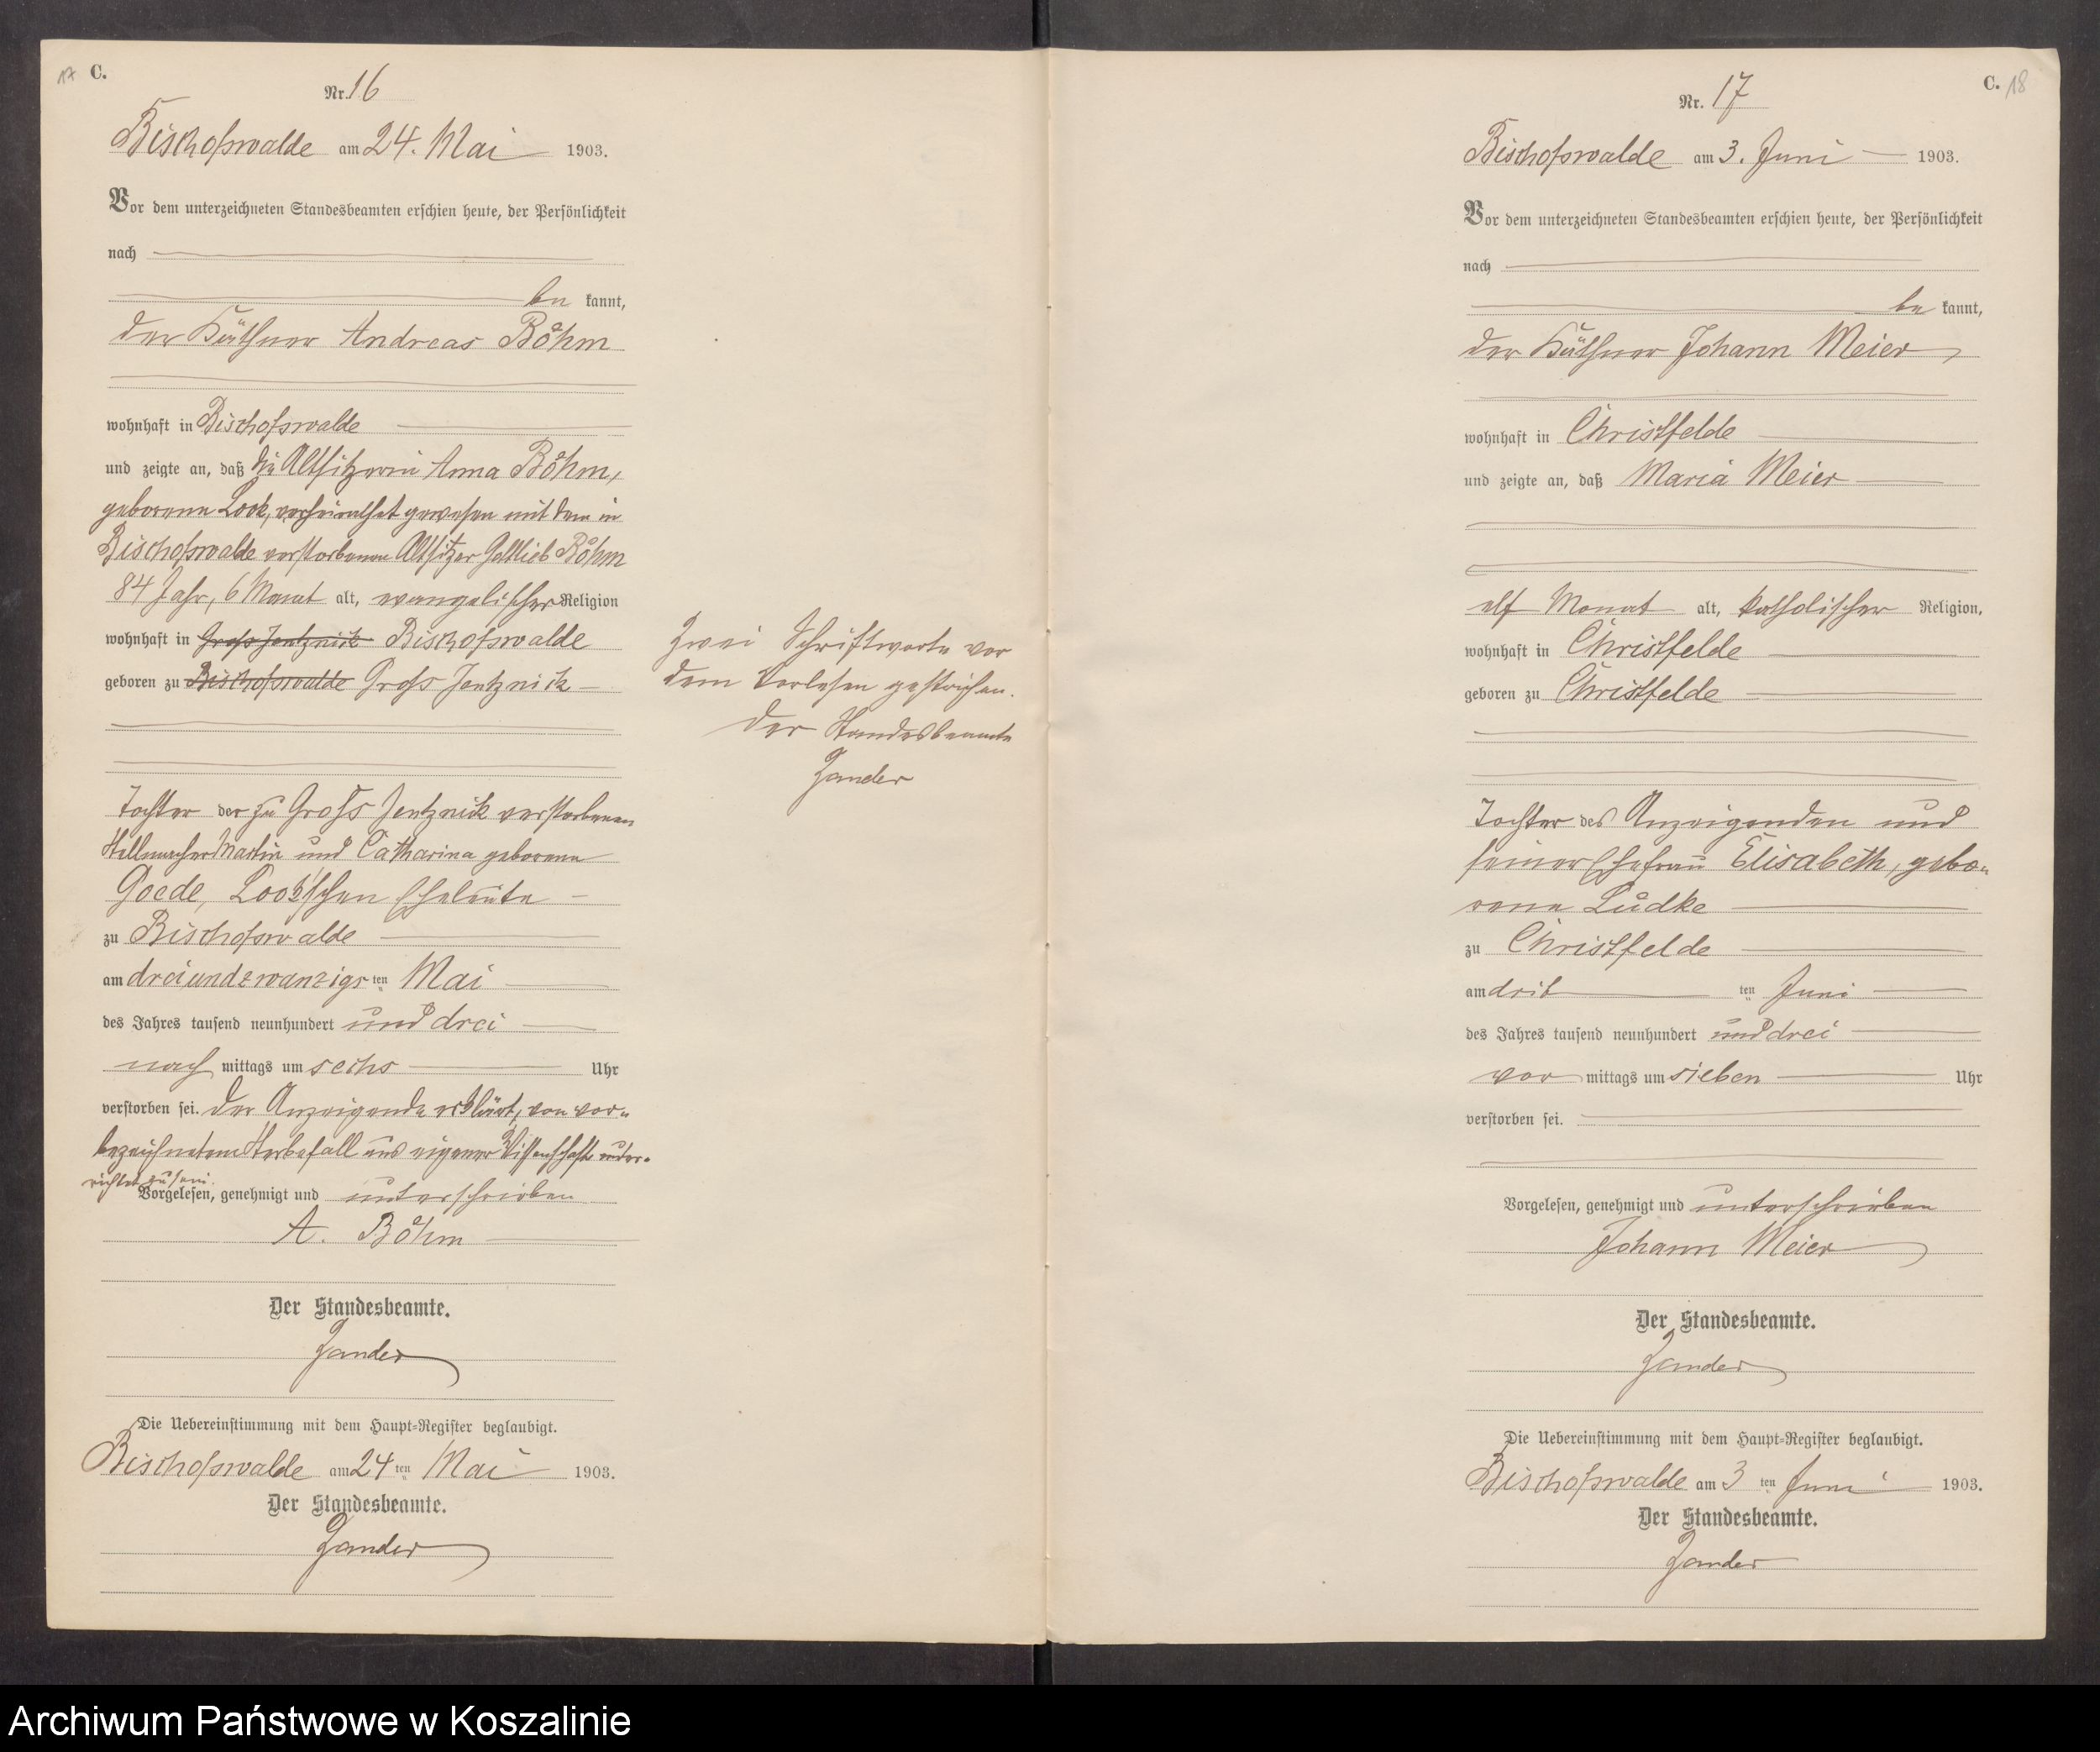 17 C.
Nr. 16
Bischofswalde am 24. Mai 1903.
Vor dem unterzeichneten Standesbeamten erschien heute, der Persönlichkeit
nach
be kannt,
der Käthner Andreas Böhm
wohnhaft in Bischofswalde
und zeigte an, daß die Altsitzerin Anna Böhm,
geborene Look, verheirathet gewesen mit dem in
Bischofswalde verstorbenen Altsitzer Gottlieb Böhm
84 Jahr, 6 Monat alt, evangelischer Religion
wohnhaft in Gross Jentznick Bischofswalde
geboren zu Bischofswalde Gross Jentznick
Zwei Schriftworte vor
dem Vorlesen gestrichen.
Der Standesbeamte
Zander
Tochter der zu Gross Jentznick verstorbenen
Stellmacher Martin und Catharina geborene
Goede, Look'schen Eheleute
zu Bischofswalde
am dreiundzwanzigs ten Mai
des Jahres tausend neunhundert und drei
nach mittags um sechs Uhr
verstorben sei. Der Anzeigende erklärt, von vor-
bezeichnetem Sterbefall aus eigener Wissenschaft unter-
richtet zu sein.
Vorgelesen, genehmigt und unterschrieben
A. Böhm
Der Standesbeamte.
Zander
Die Uebereinstimmung mit dem Haupt-Register beglaubigt.
Bischofswalde am 24 ten Mai 1903.
Der Standesbeamte.
Zander
C. 18
Nr. 17
Bischofswalde am 3. Juni 1903.
Vor dem unterzeichneten Standesbeamten erschien heute, der Persönlichkeit
nach
be kannt,
der Käthner Johann Meier
wohnhaft in Christfelde
und zeigte an, daß Maria Meier
elf Monat alt, katholischer Religion,
wohnhaft in Christfelde
geboren zu Christfelde
Tochter des Anzeigenden und
seiner Ehefrau Elisabeth, gebo-
rene Lüdke
zu Christfelde
am drit ten Juni
des Jahres tausend neunhundert und drei
vor mittags um sieben Uhr
verstorben sei.
Vorgelesen, genehmigt und unterschrieben
Johann Meier
Der Standesbeamte.
Zander
Die Uebereinstimmung mit dem Haupt-Register beglaubigt.
Bischofswalde am 3 ten Juni 1903.
Der Standesbeamte.
Zander
Archiwum Państwowe w Koszalinie